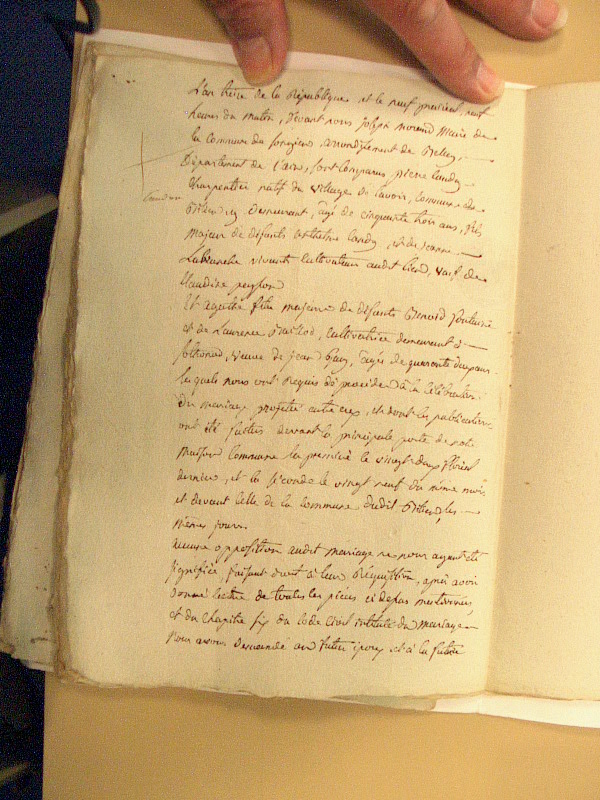 L'an treize de la République et le neuf prairial, neuf
heures du matin, devant nous joseph morand Maire de
la commune de songieu, arrondissement de Belley,
Département de l'ain, sont comparus pierre Landy
charpentier natif du village de lavoir, commune de
demeurant, âgé de cinquante trois ans, fils
majeur de défunts anthelme Landy, et de jeanne
Lablanche vivants cultivateurs audit lieu, veuf de
Claudine
Et agathe fille majeure de défunts Benoid fontaine
et de Laurence cultivatrice demeurant à
veuve de jean âgée de quarante deux ans
lesquels nous ont requis de procéder à la célébration
du mariage projetté entre eux, et dont les publications
ont été faittes devant la principale porte de notre
maison commune la première le vingt deux floréal
dernier, et la seconde le vingt neuf du même mois,
et devant celle de la commune dudit les
mêmes jours.
aucune opposition audit mariage ne nous ayant été
signifiée, faisant droit à leur Réquisition, après avoir
donné lecture de toutes les pièces ci dessus mentionnées,
et du chapitre six du code civil intitulé du mariage
Nous avons demandé au futur époux et à la future